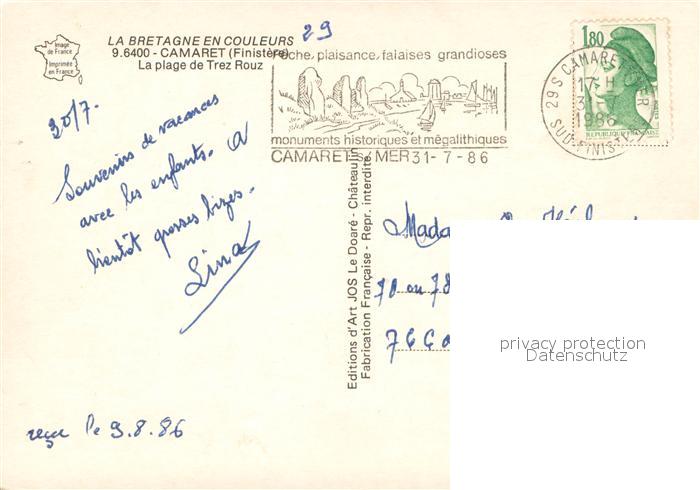 29
Image
de France
Imprimée
en France
LA BRETAGNE EN COULEURS
9.6400 - CAMARET (Finistère)
La plage de Trez Rouz
Pêche, plaisance, falaises grandioses
monuments historiques et mégalithiques
CAMARET S/ MER 31-7-86
1,80
REPUBLIQUE FRANÇAISE
29S CAMARET MER
17 H
1986
SUD-FINIST
30/7.
Souvenirs de vacances
avec les enfants. A
bientôt grosses bizes.
Lina
Editions d'Art JOS Le Doaré - Châteaulin
Fabrication Française - Repr. interdite.
70 ou 78
privacy protection
Datenschutz
reçu le 9.8.86